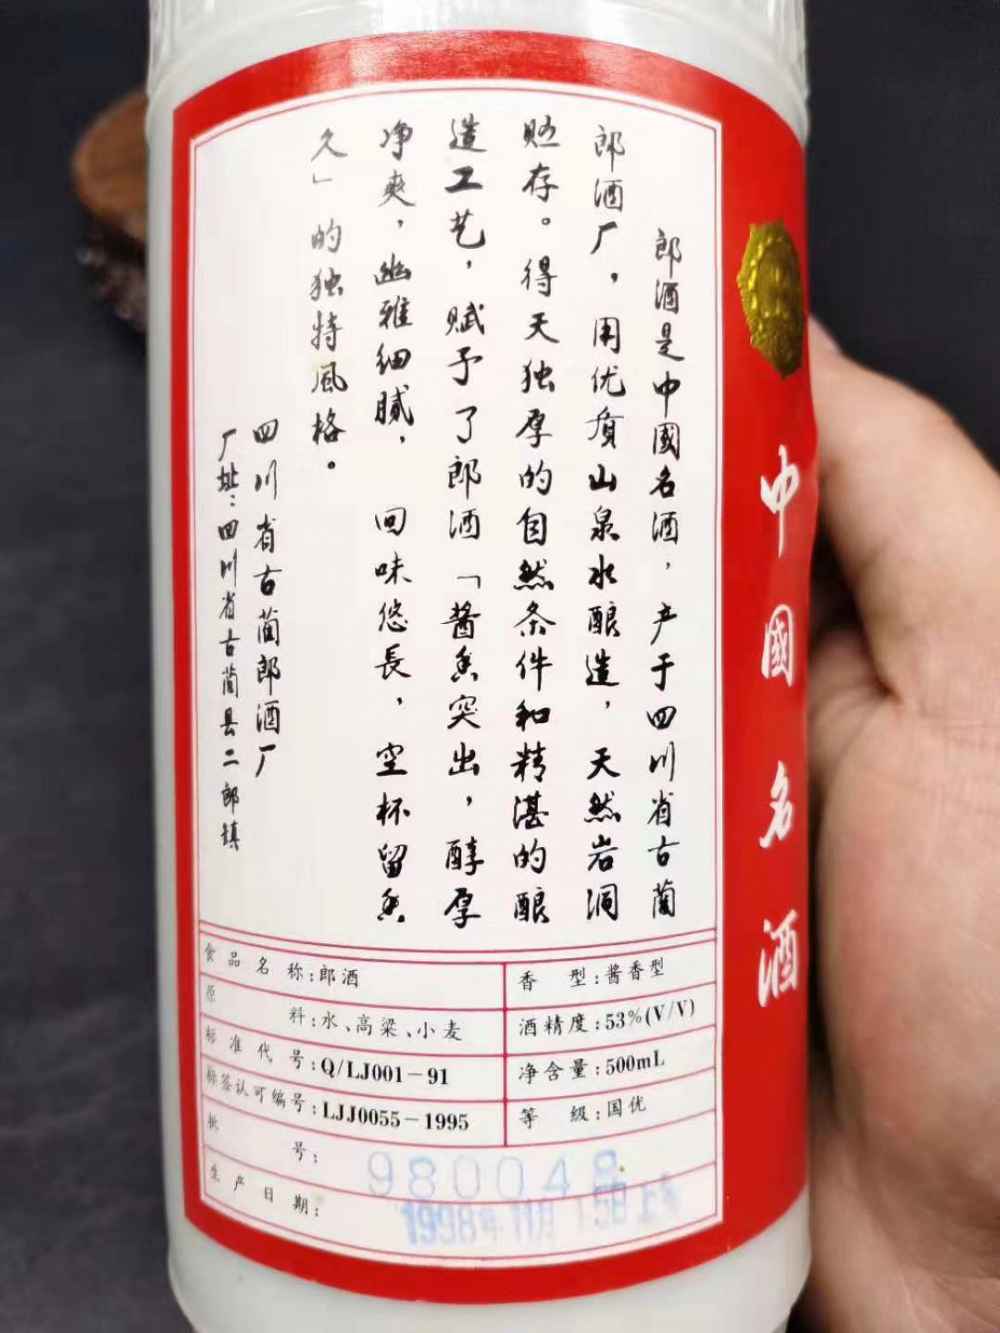 郎酒是中國名酒，产于四川省古蔺
郎酒厂，用优质山泉水酿造，天然岩洞
贮存。得天独厚的自然条件和精湛的酿
造工艺，赋予了郎酒「酱香突出，醇厚
净爽，幽雅细腻，回味悠長，空杯留香
久」的独特風格。
四川省古蔺郎酒厂
厂址：四川省古蔺县二郎镇
中國名酒
食品名称：郎酒
香型：酱香型
原料：水、高粱、小麦
酒精度：53%(V/V)
标准代号：Q/LJ001-91
净含量：500mL
标签认可编号：LJJ0055-1995
等级：国优
批号：980048
生产日期：1998年11月